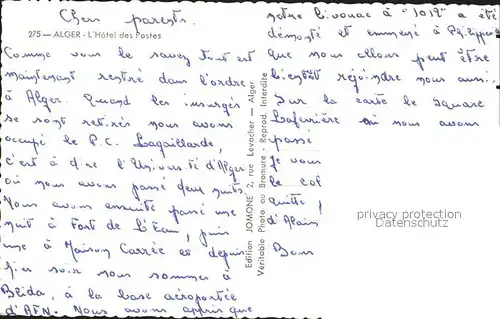 Chers parents.
275 — ALGER - L'Hôtel des Postes
Comme vous le savez tout est
maintenant rentré dans l'ordre
à Alger. Quand les insurgés
se sont retirés nous avons
occupé le P.C. Lagaillarde,
c'est à dire l'Université d'Alger
où nous avons passé deux nuits
Nous avons ensuite passé une
nuit à Fort de L'Eau, puis
une à Maison Carrée et depuis
hier soir nous sommes à
Blida, à la base aéroportée
d'AFN. Nous avons appris que
Edition JOMONE 2, rue Levacher — Alger
Véritable Photo au Bromure - Reprod. Interdite
notre bivouac à "1019" a été
démonté et emmené à Philippe
que nous allons peut être
bientôt rejoindre nous aussi.
Sur la carte le square
Laferrière où nous avons
passé
Je vous
le
quitte,
d'Alain
Bons
privacy protection
Datenschutz